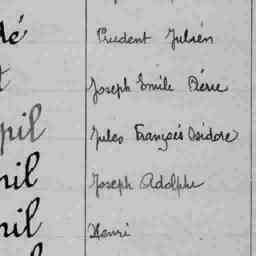 é Prudent Julien
Joseph Emile Pierre
pil Jules François Isidore
pil Joseph Adolphe
pil Henri